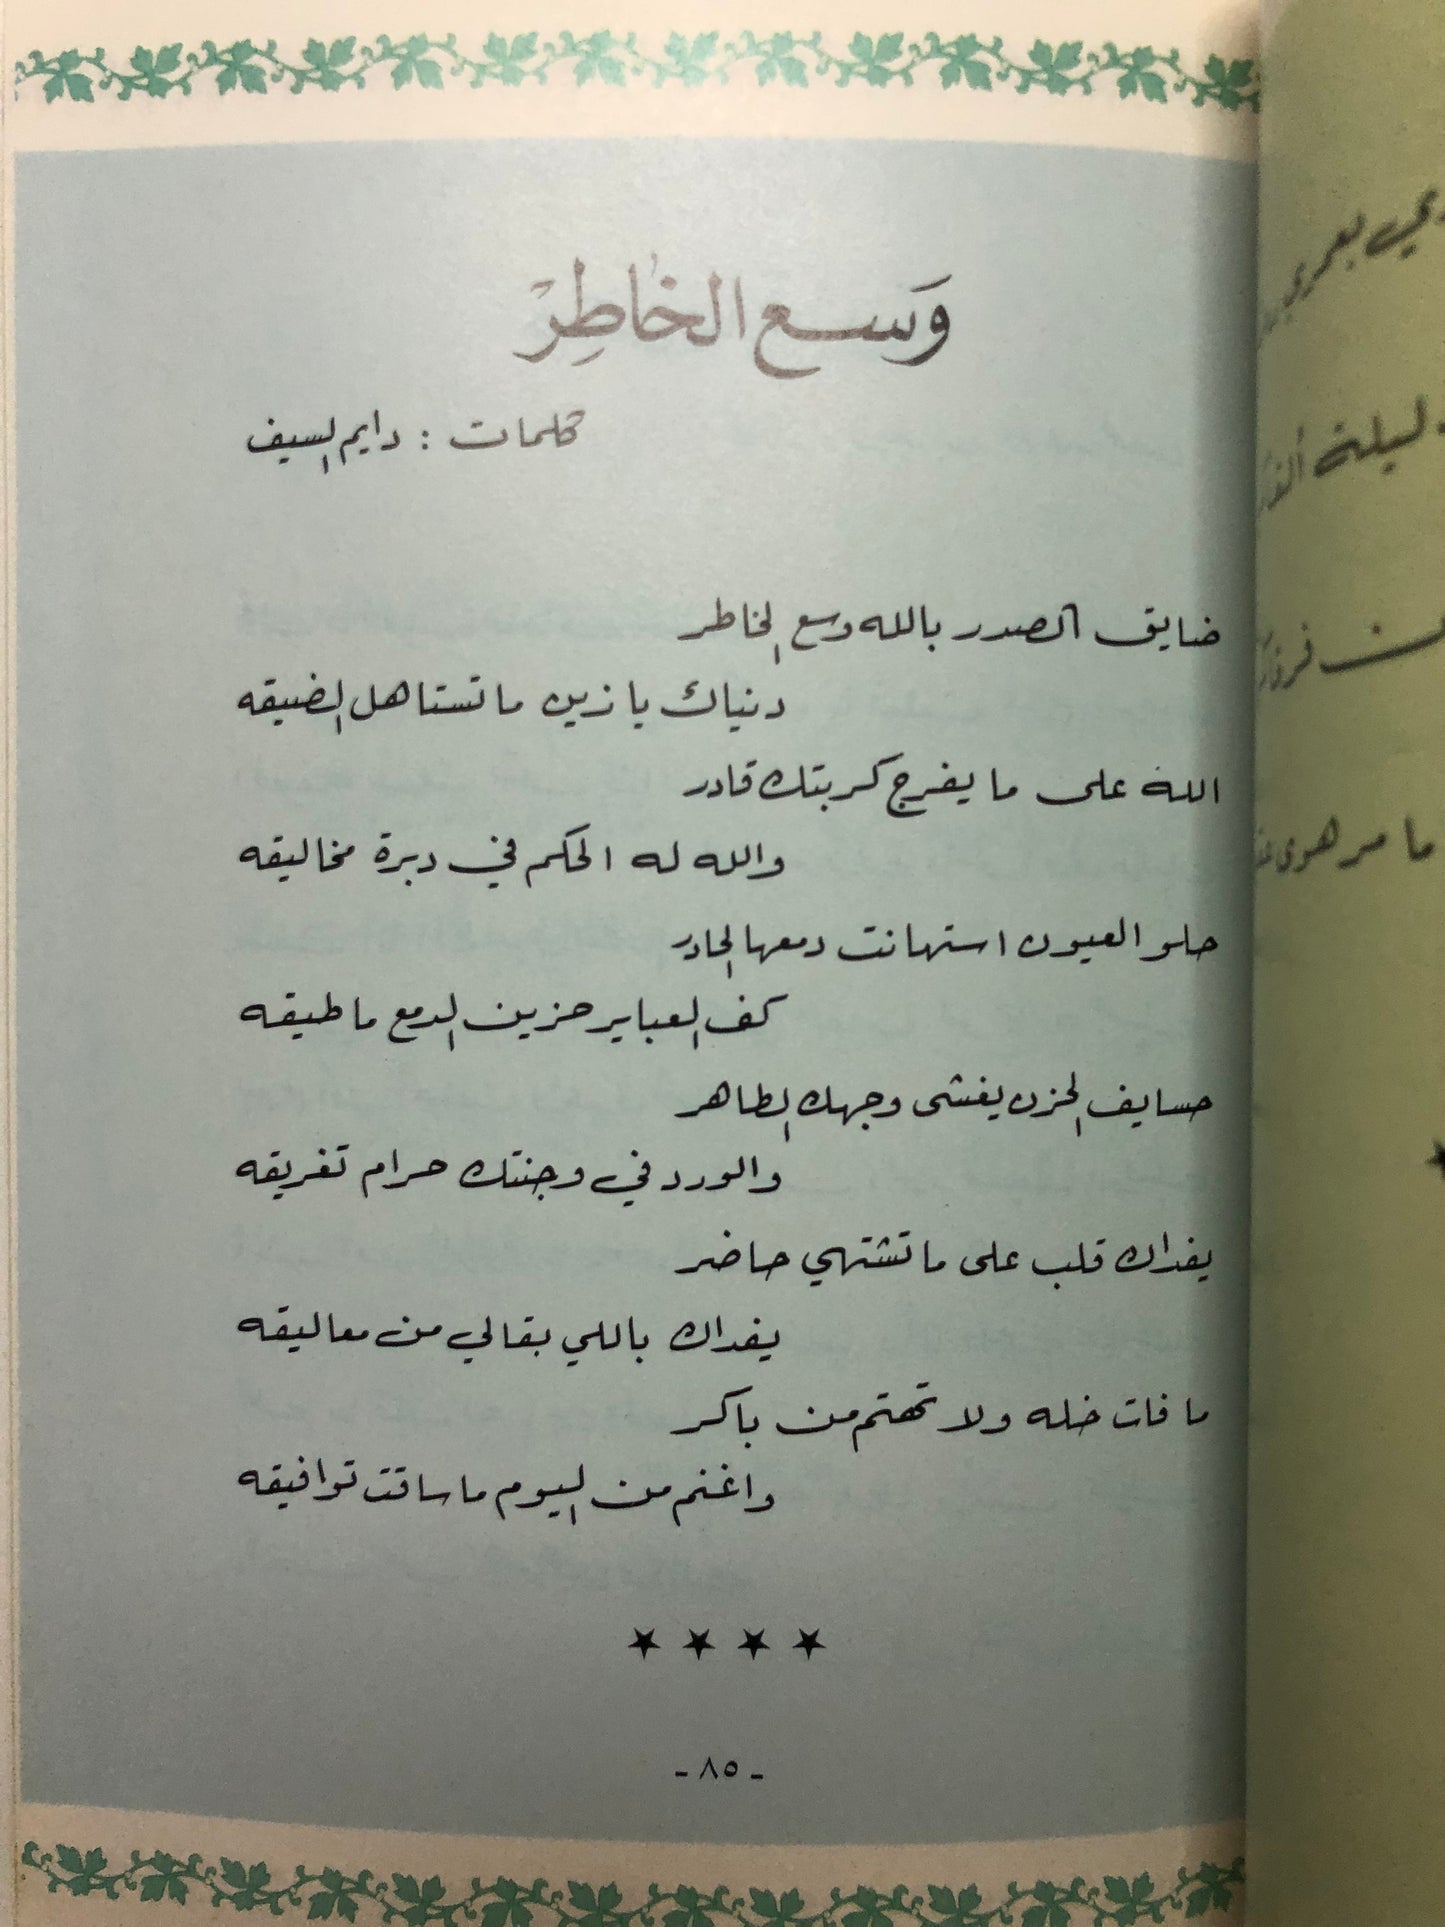 وَسع الخاطِرْ
كلمات : دايم السيف
ضايق الصدر بالله وسع الخاطر
دنياك يا زين ما تستاهل الضيقه
الله على ما يفرج كربتك قادر
والله له الحكم في دبرة مخاليقه
حلو العيون استهانت دمعها الحادر
كف العباير حزين الدمع ما طيقه
حسايف الحزن يغشى وجهك الطاهر
والورد في وجنتك حرام تغريقه
يفداك قلب على ما تشتهي حاضر
يفداك باللي بقالي من معاليقه
ما فات خله ولا تهتم من باكر
واغنم من اليوم ما ساقت توافيقه
★ ★ ★ ★
- ٨٥ -
ليلة
ما مر هوى